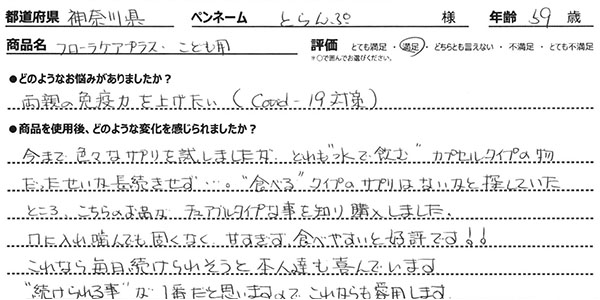 都道府県 神奈川県 ペンネーム とらんぷ 様 年齢 59 歳
商品名 フローラケアプラス・こども用 評価 とても満足・満足・どちらとも言えない・不満足・とても不満足
※○で囲んでお選びください。
●どのようなお悩みがありましたか？
両親の免疫力を上げたい（Covid-19対策）
●商品を使用後、どのような変化を感じられましたか？
今まで色々なサプリを試しましたが、どれも"水で飲む"カプセルタイプの物
だったせいか長続きせず…。"食べる"タイプのサプリはないかと探していた
ところ、こちらのお品が、チュアブルタイプな事を知り購入しました。
口に入れ噛んでも固くなく、甘すぎず、食べやすいと好評です!!
これなら毎日続けられそうと本人達も喜んでいます
"続けられる事"が1番だと思いますのでこれからも愛用します